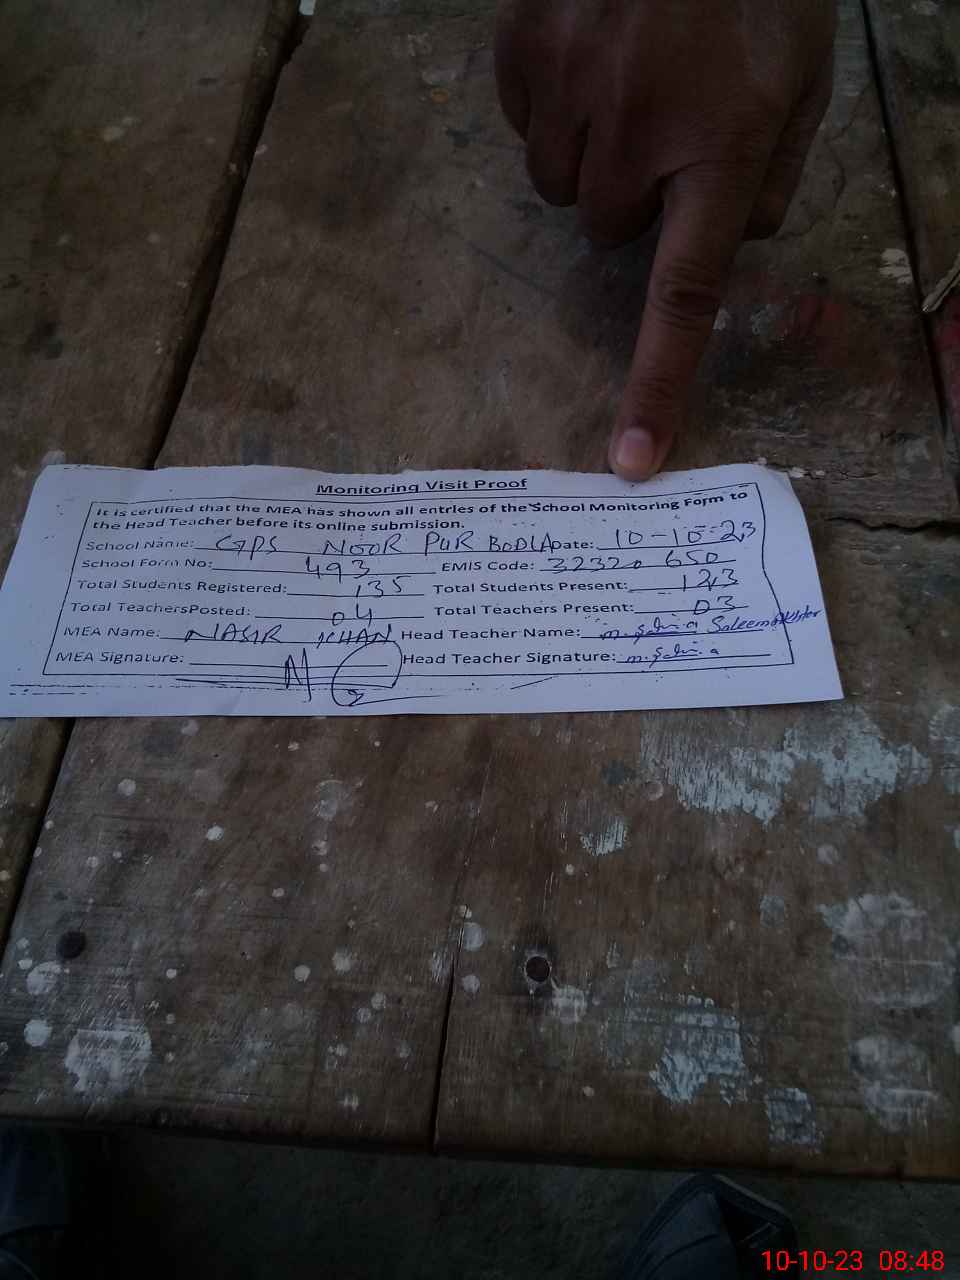 Monitoring Visit Proof
It is certified that the MEA has shown all entries of the School Monitoring Form to
the Head Teacher before its online submission.
School Name: GPS NOOR PUR BODLA Date: 10-10-23
School Form No: 493 EMIS Code: 32320650
Total Students Registered: 135 Total Students Present: 123
Total TeachersPosted: 04 Total Teachers Present: 03
MEA Name: NASIR KHAN Head Teacher Name: Saleem Akhter
MEA Signature: Head Teacher Signature:
10-10-23 08:48